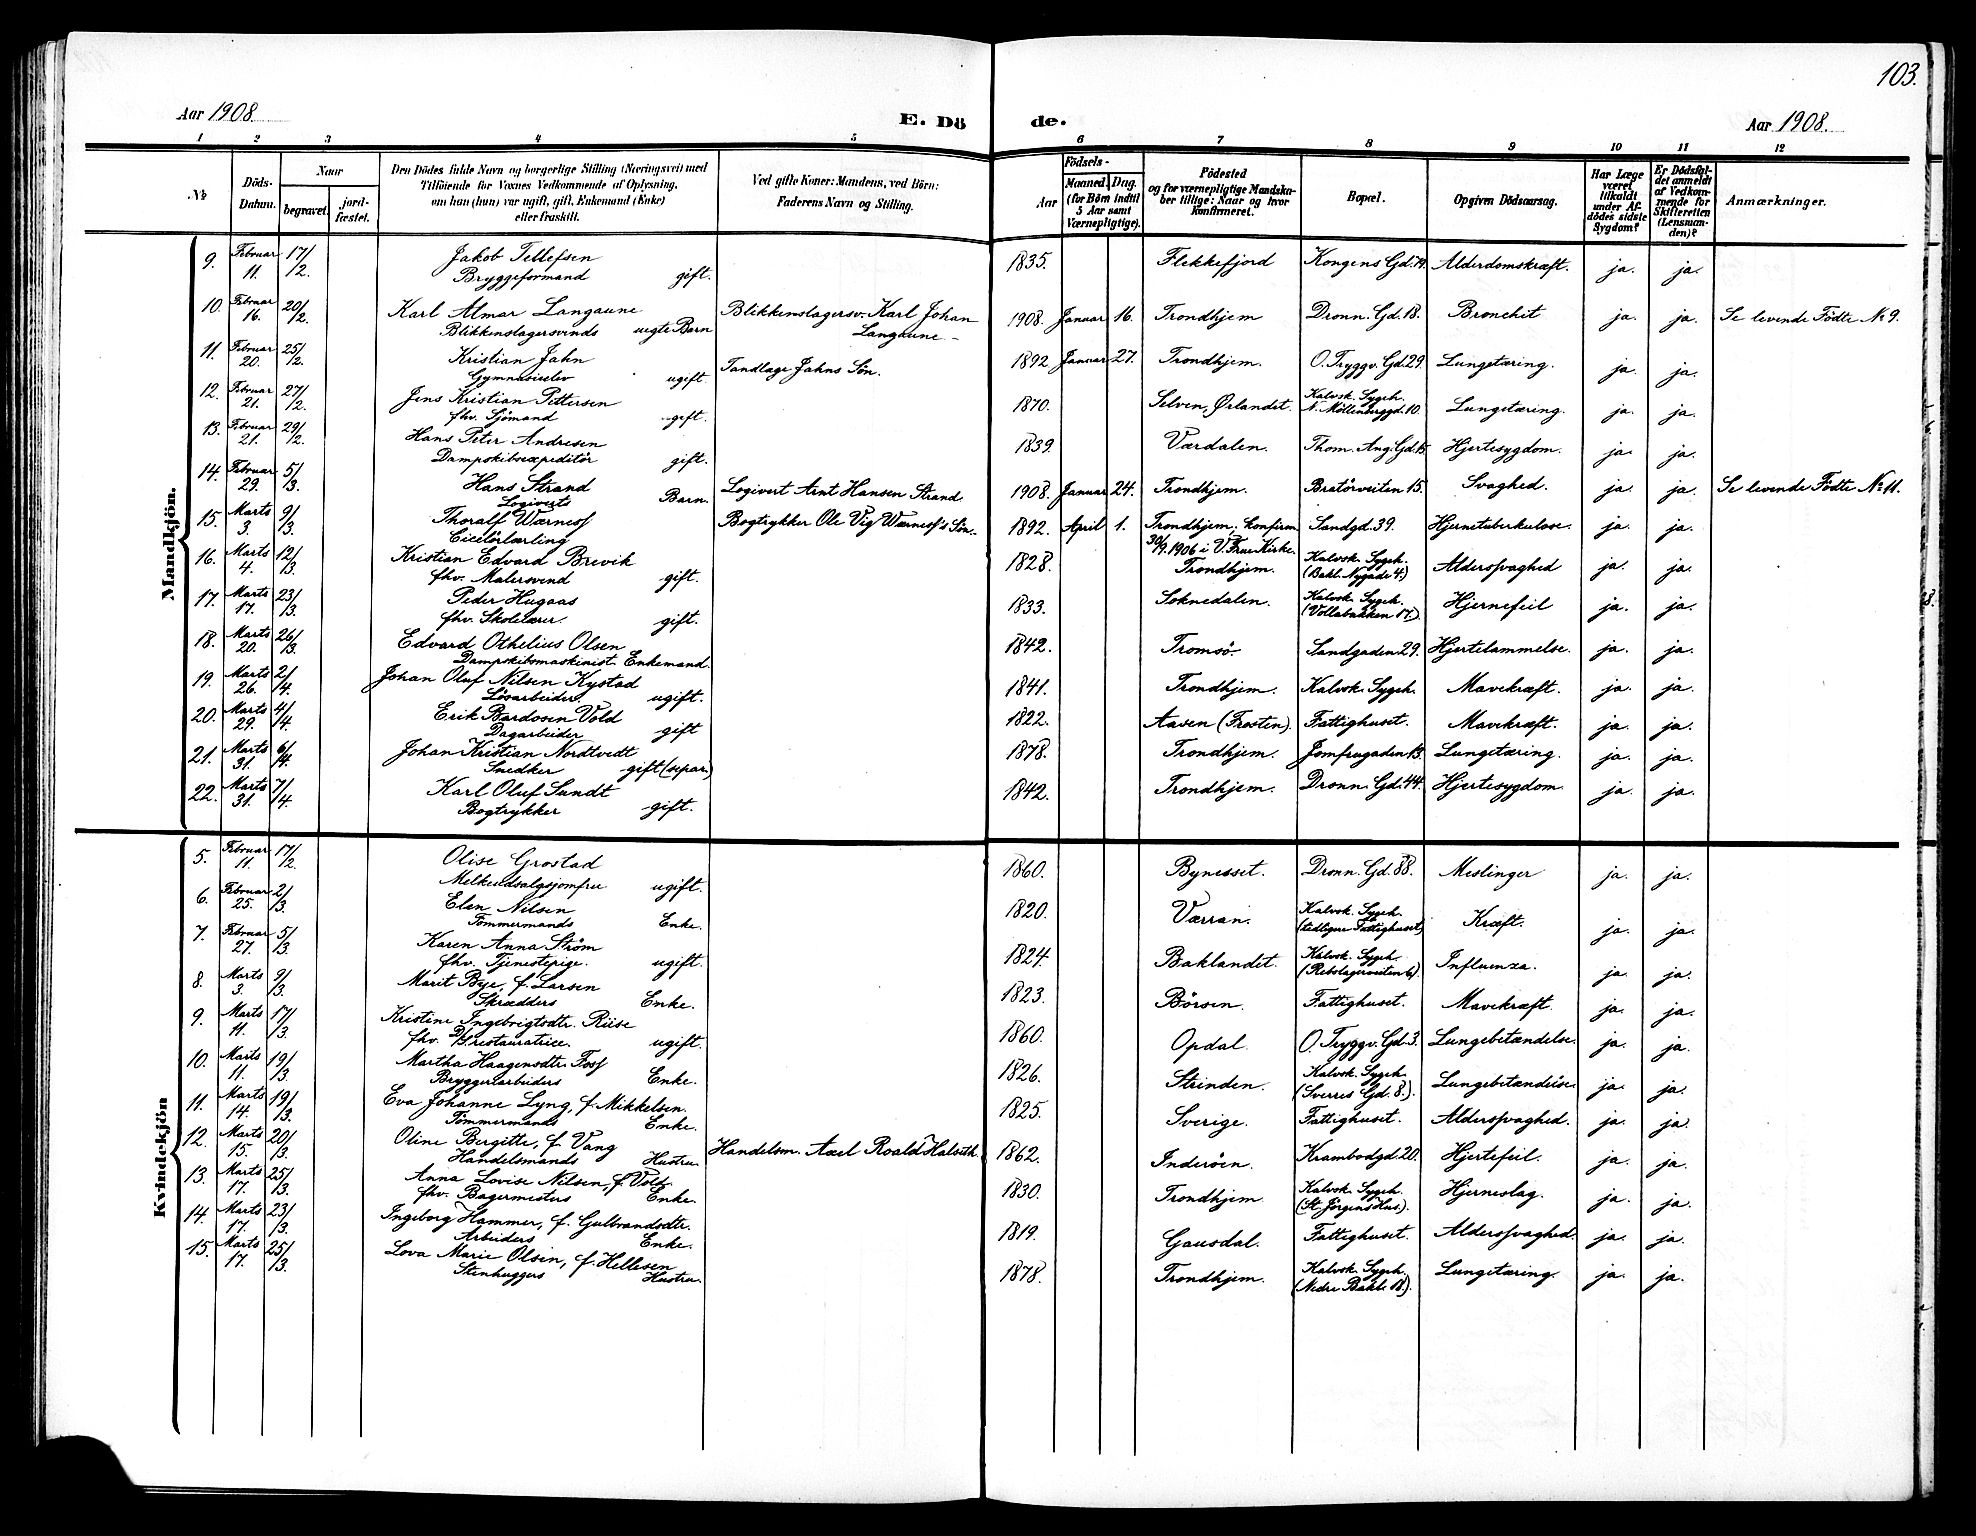 103.
Aar 1908. E. Dö de. Aar 1908.
1 2 3 4 5 6 7 8 9 10 11 12
№ Döds-Datum. Naar begravet. jord-fæstet. Den Dödes fulde Navn og borgerlige Stilling (Næringsvei) med Tilföiende for Voxnes Vedkommende af Oplysning, om han (hun) var ugift, gift, Enkemand (Enke) eller fraskilt. Ved gifte Koner: Mandens, ved Börn: Faderens Navn og Stilling. Födsels- Aar Maaned. Dag. (for Börn indtil 5 Aar samt Værnepligtige). Födested og for værnepligtige Mandskaber tillige: Naar og hvor konfirmeret. Bopæl. Opgiven Dödsaarsag. Har Læge været tilkaldt under Afdödes sidste Sygdom? Er Dödsfaldet anmeldt af Vedkommende for Skifteretten (Lensmanden)? Anmærkninger.
Mandkjön.
9. Februar 11. 17/2. Jakob Tellefsen Bryggeformand gift. 1835. Flekkefjord Kongens Gd. 79. Alderdomskræft. ja. ja.
10. Februar 16. 20/2. Karl Almar Langaune Blikkenslagersvends uegte Barn Blikkenslagersv. Karl Johan Langaune - 1908. Januar 16. Trondhjem Dronn. Gd. 18. Bronchit ja. ja. Se levende Födte № 9.
11. Februar 20. 25/2. Kristian Jahn Gymnasieelev ugift. Tandlæge Jahns Sön. 1892 Januar 27. Trondhjem. O. Tryggv. Gd. 29. Lungetæring. ja. ja.
12. Februar 21. 27/2. Jens Kristian Pettersen fhv. Sjömand gift. 1870. Selven, Ørlandet. Kalvsk. Sygeh. N. Möllenberggd. 10. Lungetæring. ja. ja.
13. Februar 21. 29/2. Hans Peter Andresen Dampskibsexpeditör gift. 1839. Værdalen. Thom. Ang. Gd. 15. Hjertesygdom. ja. ja.
14. Februar 29. 5/3. Hans Strand Logiverts Barn. Logivert Arnt Hansen Strand 1908. Januar 24. Trondhjem. Bratörveiten 15. Svaghed. ja. ja. Se levende Födte № 11.
15. Marts 3. 9/3. Thoralf Wærness Ciselörlærling Bogtrykker Ole Vig Wærness's Sön. 1892 April 1. Trondhjem; konfirm 30/9. 1906 i V. Frue Kirke. Sandgd. 39. Hjernetuberkulose. ja. ja.
16. Marts 4. 12/3. Kristian Edvard Brevik fhv. Malersvend gift. 1828. Trondhjem. Kalvsk. Sygeh. (Bakl. Nygade 4.) Alderssvaghed ja. ja.
17. Marts 17. 23/3. Peder Hugaas fhv. Skolelærer. gift. 1833. Soknedalen. Kalvsk. Sygeh. (Vollabakken 17.) Hjernefeil ja. ja.
18. Marts 20. 26/3. Edvard Othelius Olsen Dampskibsmaskinist. Enkemand. 1842. Tromsö. Sandgaden 29. Hjertelammelse. ja. ja.
19. Marts 26. 2/4. Johan Oluf Nilsen Kystad Lösarbeider. ugift. 1841. Trondhjem. Kalvsk. Sygeh. Mavekræft. ja. ja.
20. Marts 29. 4/4. Erik Bardosen Vold Dagarbeider gift 1822. Aasen (Frosten). Fattighuset. Mavekræft. ja. ja.
21. Marts 31. 6/4. Johan Kristian Nordtvedt Snedker gift (separ.) 1878. Trondhjem. Jomfrugaden 13. Lungetæring. ja. ja.
22. Marts 31. 7/4. Karl Oluf Sundt Bogtrykker gift. 1842. Trondhjem. Dronn. Gd. 44. Hjertesygdom. ja. ja.
Kvindekjön
5. Februar 11. 17/2. Olise Grostad Melkeudsalgsjomfru ugift. 1860. Bynesset. Dronn. Gd. 88. Meslinger ja. ja.
6. Februar 25. 2/3. Elen Nilsen Tömmermands Enke. 1820. Værran. Kalvsk. Sygeh. (tedligere Fattighuset) Kræft. ja. ja.
7. Februar 27. 5/3. Karen Anna Ström fhv. Tjenestepige. ugift. 1824. Baklandet. Kalvsk. Sygeh. (Rebslagerveiten 6). Influenza. ja. ja.
8. Marts 3. 9/3. Marit Bye, f. Larsen Skrædders Enke. 1823. Börsen. Fattighuset. Mavekræft ja. ja.
9. Marts 11. 17/3. Kristine Ingebrigtsdtr. Riise fhv. D/S restauratrice. ugift. 1860. Opdal. O. Tryggv. Gd. 3. Lungebetændelse. ja. ja.
10. Marts 11. 19/3. Martha Haagensdtr. Foss Bryggeriarbeiders Enke. 1826. Strinden. Kalvsk. Sygeh. (Sverres Gd. 8.). Lungebetændelse. ja. ja.
11. Marts 14. 19/3. Eva Johanne Lyng, f. Mikkelsen. Tömmermands Enke. 1825. Sverige. Fattighuset. Alderssvaghed. ja. ja.
12. Marts 15. 20/3. Oline Bergitte, f. Vang Handelsmands Hustru Handelsm. Axel Roald Halseth. 1862. Inderöen. Krambodgd. 20. Hjertefeil. ja. ja.
13. Marts 17. 25/3. Anna Lovise Nilsen, f. Voldt. fhv. Bagermesters Enke. 1830. Trondhjem Kalvsk. Sygeh. (St. Jörgens Hus.) Hjerneslag. ja. ja.
14. Marts 17. 23/3. Ingeborg Hammer, f. Gulbrandsdtr. Arbeiders Enke. 1819. Gausdal. Fattighuset. Alderssvaghed. ja. ja.
15. Marts 17. 25/3. Lova Marie Olsen, f. Hellesen Stenhuggers Hustru. 1878. Trondhjem. Kalvsk. Sygeh. (Nedre Bakl. 18.). Lungetæring. ja. ja.